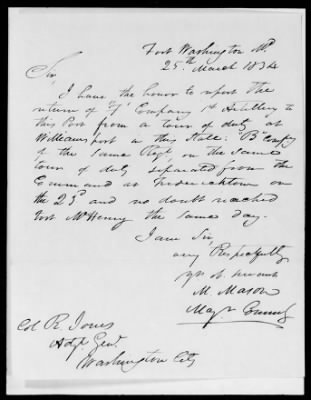 Fort Washington Md
25th March 1834
Sir
I have the honor to report the
return of Company 1st Artillery to
this Post from a tour of duty at
Williamsport in this State. "B" Compy
of the same Regt. on the same
tour of duty separated from the
Command at Fredericktown on
the 23d and no doubt reached
Fort McHenry the same day.
I am Sir,
very Respectfully
yr ob servant
M. Mason
Majr Commdg
Col R. Jones
Adjt. Genl.
Washington City